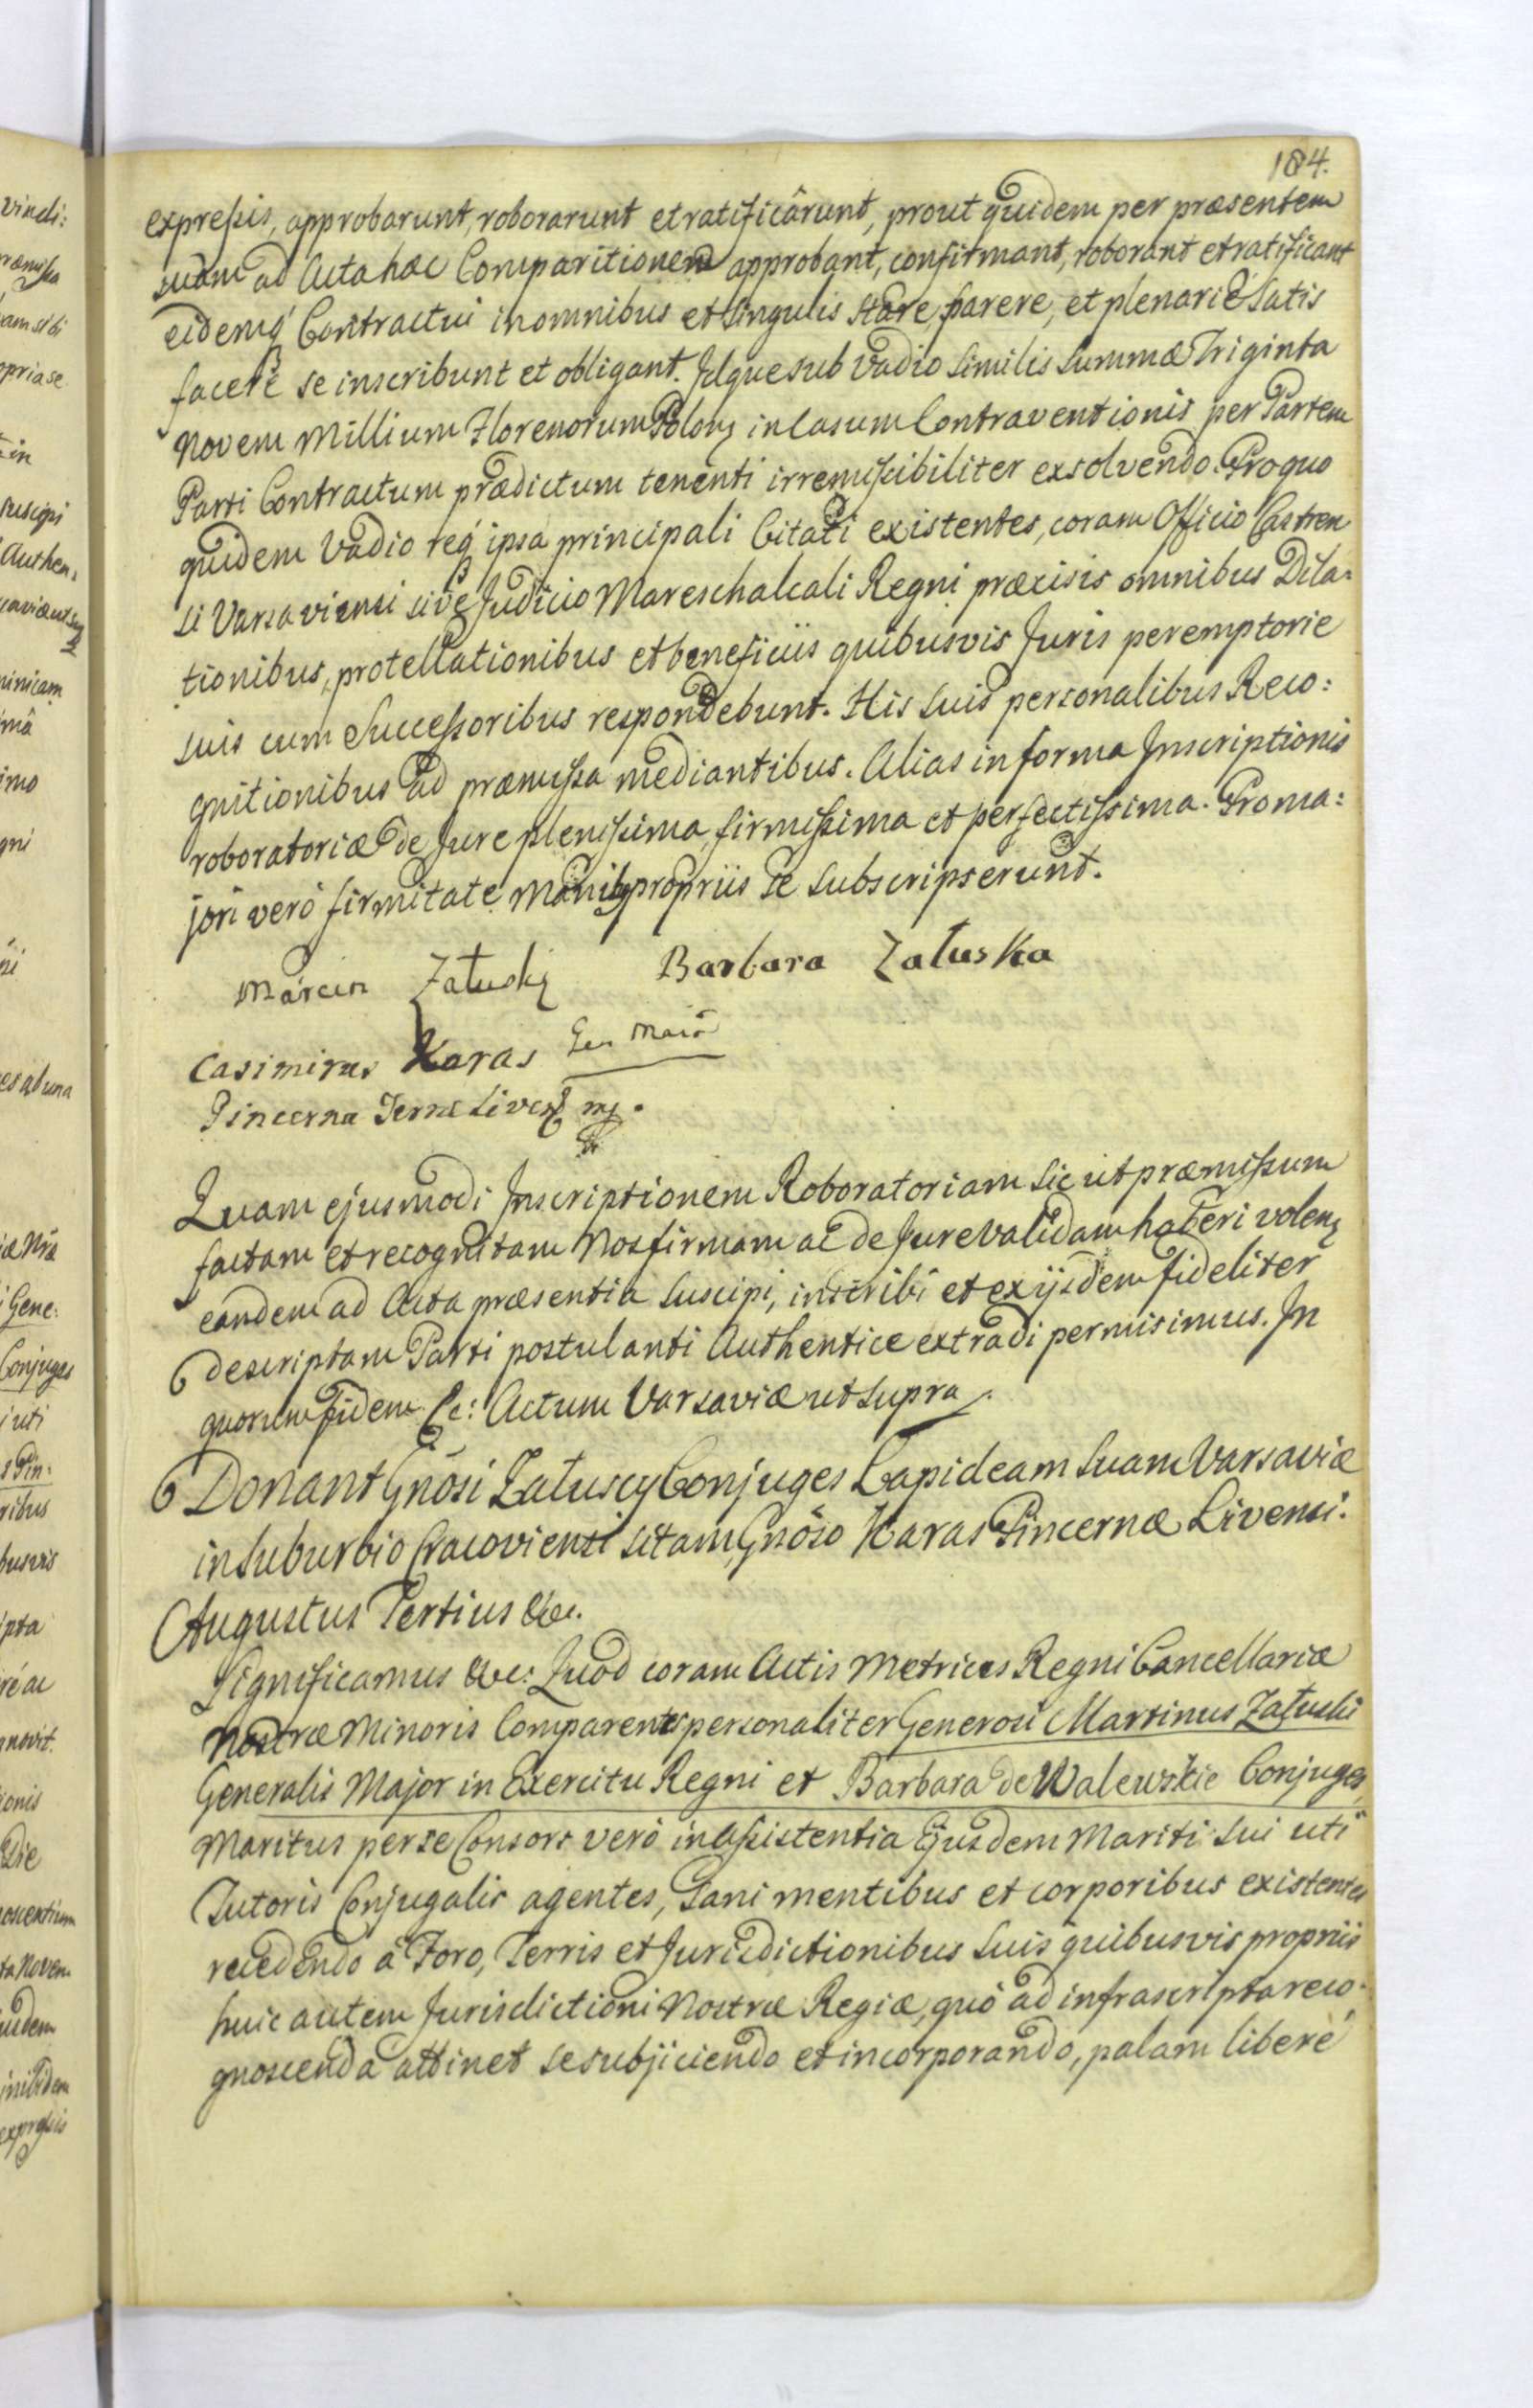 184.
expressis, approbarunt, roborarunt et ratificârunt, prout quidem per præsentem
suam ad Acta hæc Comparitionem approbant, confirmant, roborant et ratificant
eidemq́ Contractui in omnibus et singulis stare, parere, et plenarié satis
facere se inscribunt et obligant. Idque sub Vadio similis summæ Triginta
Novem Millium Florenorum Polon̄ in Casum Contraventionis per Partem
Parti Contractum prædictum tenenti irremissibiliter exsolvendo. Pro quo
quidem Vadio req́ ipsa principali Citati existentes, coram Officio Castren
si Varsaviensi sive Judicio Mareschalcali Regni præcisis omnibus Dila:
tionibus, protellationibus et beneficiis quibusvis Juris peremptorie
suis cum Successoribus respondebunt. His suis personalibus Reco:
gnitionibus ad præmissa mediantibus. Alias in forma Inscriptionis
roboratoriæ de Jure plenissima, firmissima et perfectissima. Pro ma:
jori veró firmitate Manibq propriis se subscripserunt.
Márcin Załuskị Barbara Załuska
Casimirus Karas
Pincerna Terræ Liven mp.
Quam ejusmodi Inscriptionem Roboratoriam sic ut præmissum
factam et recognitam Nos firmam ac de Jure validam haberi volen̄
eandem ad Acta præsentia suscipi, inscribi et ex ijsdem fideliter
descriptam Parti postulanti Authentice extradi permisimus. In
quorum fidem &c: Actum Varsaviæ ut supra.
Donant Gnōsi Załuscy Conjuges Lapideam suam Varsaviæ
in Suburbio Cracoviensi sitam, Gnōso Karas Pincernæ Livensi.
Augustus Tertius &c.
Significamus &c: Quod coram Actis Metrices Regni Cancellariæ
Nostræ Minoris Comparentes personaliter Generosi Martinus Załuski
Generalis Major in Exercitu Regni et Barbara de Walewskie Conjuges,
Maritus per se Consors veró in assistentia Ejusdem Mariti sui uti
Tutoris Conjugalis agentes, Sani mentibus et corporibus existentes
recedendo á Foro, Terris et Jurisdictionibus suis quibusvis propriis
huic autem Jurisdictioni Nostræ Regiæ, quó ad infrascripta reco:
gnoscenda attinet se subjiciendo et incorporando, palam liberé